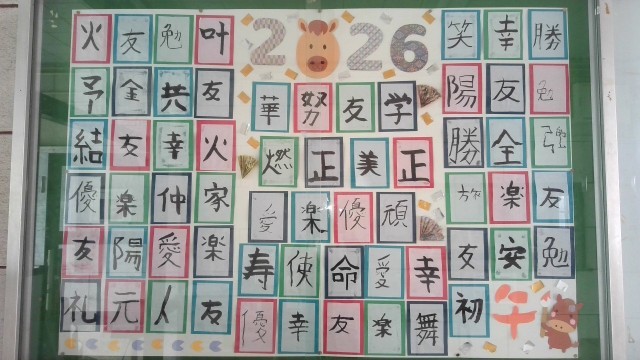 2026
火 友 勉 叶
予 全 共 友
結 友 幸 火
優 楽 仲 家
友 陽 愛 楽
礼 元 人 友
華 努 友 学
燃 正 美 正
愛 楽 優 頑
寿 使 命 愛 幸
優 幸 友 楽 舞
笑 幸 勝
陽 友 勉
勝 全 強
旅 楽 友
友 安 勉
初 午